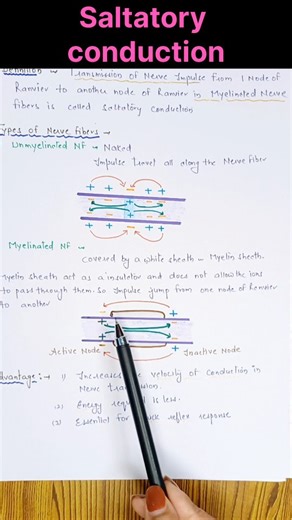 Saltatory
conduction
Definition :- Transmission of Nerve Impulse from 1 Node of
Ranvier to another node of Ranvier in Myelinated Nerve
fibers is called Saltatory Conduction
Types of Nerve fibers :-
Unmyelinated Nf - Naked
Impulse travel all along the Nerve fiber
+ + - + +
- - + - -
- - + - -
+ + - + +
Myelinated Nf -
covered by a white sheath - Myelin Sheath.
Myelin Sheath act as a insulator and does not allow the ions
to pass through them. So Impulse jump from one node of Ranvier
to another
- +
+ -
+ -
- +
Active Node Inactive Node
Advantage :- 1) Increases the velocity of Conduction in
Nerve transmission.
(2) Energy required is less.
(3) Essential for quick reflex response